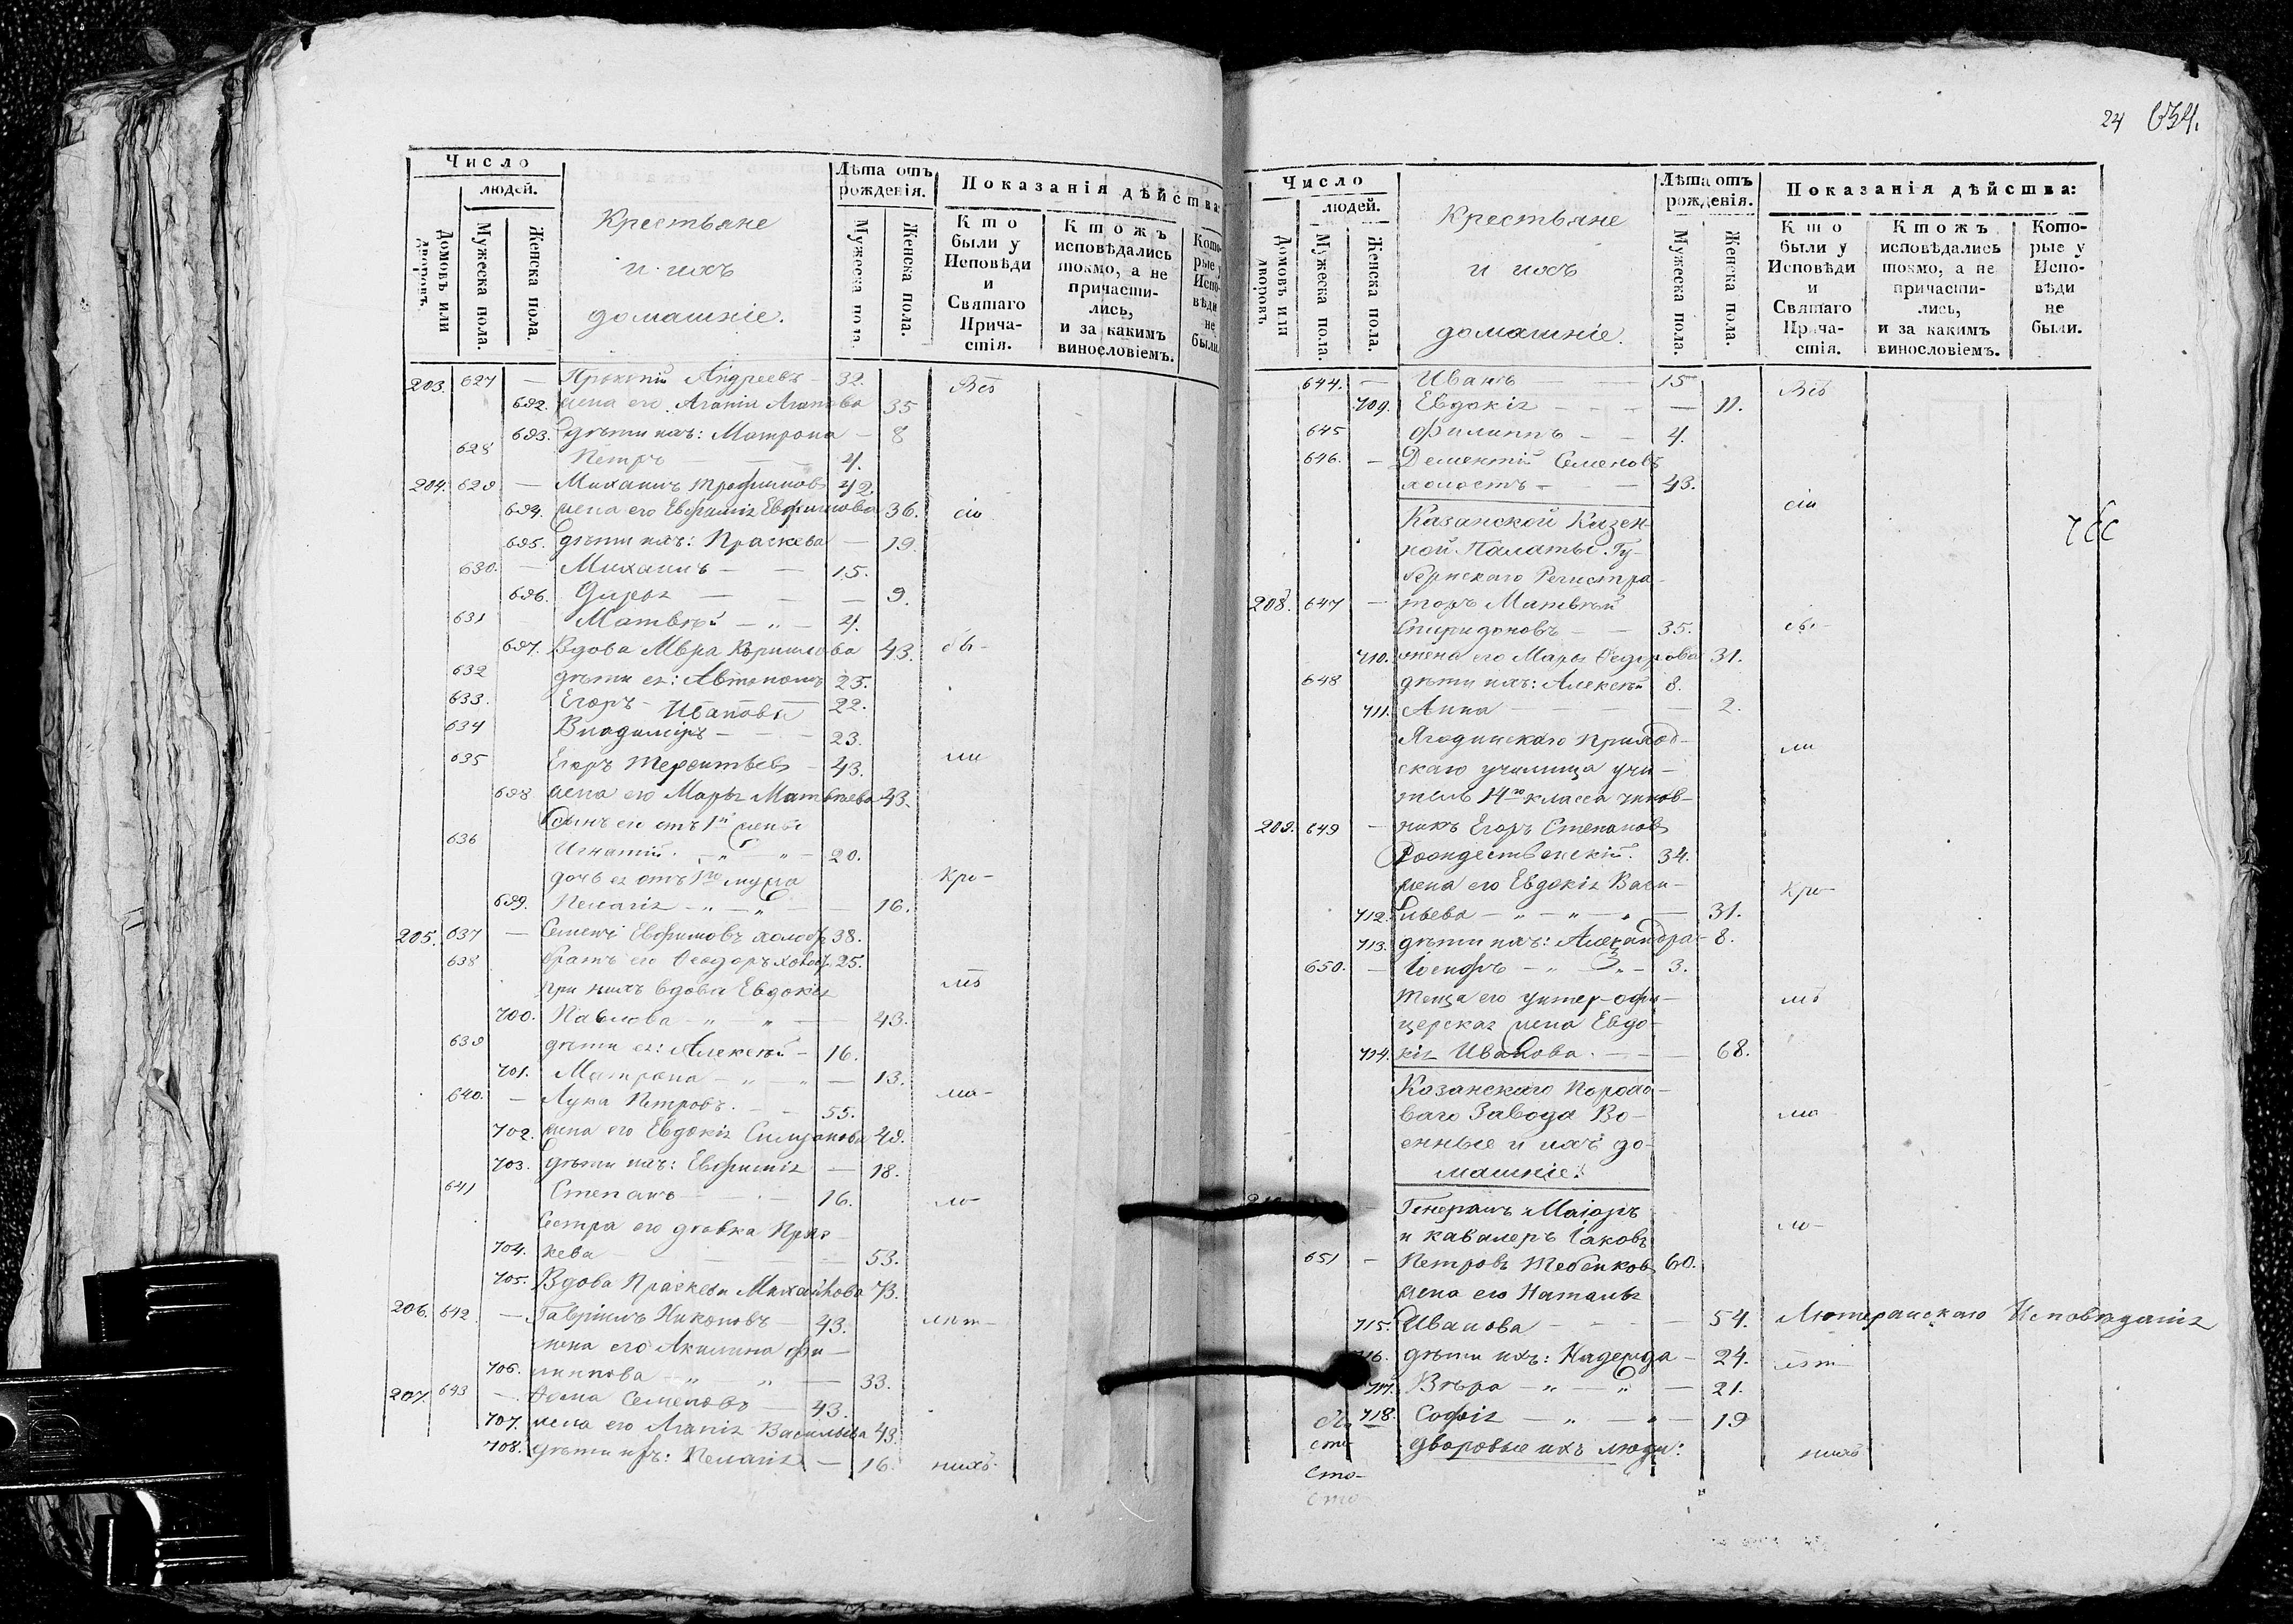 Число
людей.
Домовъ или дворовъ.
Мужеска пола.
Женска пола.
Крестьяне
и ихъ
домашніе.
Лѣта отъ рожденія.
Мужеска пола.
Женска пола.
Показанія дѣйства
Кто были у Исповѣди и Святаго Прича- стія.
Ктожъ исповѣдались токмо, а не причасти- лись, и за какимъ винословіемъ.
Кото- рые у Испо- вѣди не были.
203. 627 — Прокопій Андреевъ — 32. Всѣ
692. жена его Агапія Агапова 35
693. дѣти ихъ: Матрона — 8
628 Петръ — 4.
204. 629 — Михаилъ Трофимовъ 42.
694. жена его Евфимія Евфимова 36. сіи
695. дѣти ихъ: Праскева — 19.
630. — Михаилъ — — 15.
696. Дарья — — — 9.
631 Матвѣй — „ — 4.
697. Вдова Мавра Кирилова 43. бы-
632 дѣти ея: Автономъ 25.
633. Егоръ — Ивановы 22.
634 Владимиръ — — 23.
635 Егоръ Терентьевъ — 43. ли
698. жена его Марья Матвѣева 43.
Сынъ его отъ 1й жены
636 Игнатій. — „ „ — 20.
дочь ея отъ 1го мужа Кро-
699. Пелагія — „ — „ — — 16.
205. 637 — Семенъ Евфимовъ холостъ 38.
638 братъ его Ѳеодоръ холостъ 25.
при нихъ вдова Евдокія мѣ
700. Павлова — „ „ — — 43.
639 дѣти ея: Алексѣй — 16.
701. Матрона — „ — „ — 13.
640. — Лука Петровъ. — — 55. ма-
702. жена его Евдокія 49.
703. дѣти ихъ: Евфимія — 18.
641 Степанъ — — 16. ло-
Сестра его дѣвка Прас-
704. кева — — — — 53.
705. Вдова Праскева Михайлова 73.
206. 642. — Гавріилъ Никоновъ — 43. лѣт-
жена его Акилина Фи-
706. липпова — „ „ — 33.
207. 643 — Ѳома Семеновъ — 43.
707. жена его Агапія Васильева 43.
708. дѣти ихъ: Пелагія — 16. нихъ.
24 634.
Число
людей.
Домовъ или дворовъ.
Мужеска пола.
Женска пола.
Крестьяне
и ихъ
домашніе.
Лѣта отъ рожденія.
Мужеска пола.
Женска пола.
Показанія дѣйства:
Кто были у Исповѣди и Святаго Прича- стія.
Ктожъ исповѣдались токмо, а не причасти- лись, и за какимъ винословіемъ.
Кото- рые у Испо- вѣди не были.
644. — Иванъ — — 15 Всѣ
709. Евдокія — — — — 11.
645 Филиппъ — — 4.
646. — Дементій Семеновъ
холостъ — — — 43.
Казанской Казен- сіи
ной Палаты Гу-
бернскаго Регистра-
208. 647 — торъ Матвѣй
Спиридоновъ — — 35. бы-
710. жена его Марья Ѳедорова 31.
648 дѣти ихъ: Алексѣй 8.
711. Анна — — — — 2.
Ягодинскаго приход- ли
скаго училища учи-
тель 14го класса чинов-
209. 649 — никъ Егоръ Степановъ
Рождественскій. 34.
жена его Евдокія Васи- кро-
712. льева — „ — „ — „ — 31.
713. дѣти ихъ: Александра — 8.
650. — Іосифъ — „ — „ — 3.
Теща его унтер-офи- мѣ
церская жена Евдо-
714. кія Иванова. — — — 68.
Казанскаго Порохо-
ваго Завода Во- ма
енные и ихъ до-
машніе.
Генералъ Маіоръ ло-
и кавалеръ Іаковъ
651 — Петровъ Тебеньковъ 60.
жена его Наталья
715. Иванова — — — — 54. Лютеранскаго Исповѣданія
716. дѣти ихъ: Надежда — 24. лѣт-
717. Вѣра — „ — „ — 21.
718. Софія — „ — „ — 19
дворовые ихъ люди: нихъ